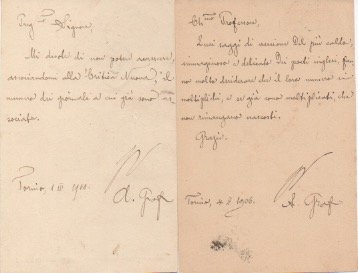 Preg.mo Signore,
Mi duole di non poter accrescere,
associandomi alla "Critica Nuova", il
numero dei giornali a cui già sono as-
sociato.
Torino, 1 901.
A. Graf
Ch.mo Professore,
Suoi saggi di versione del più caldo,
immaginoso e delicato dei poeti inglesi, fan-
no molto desiderare che il loro numero si
moltiplichi, e se già sono moltiplicati, che
non rimangano nascosti.
Grazie.
Torino, 4. 2. 1906.
A. Graf